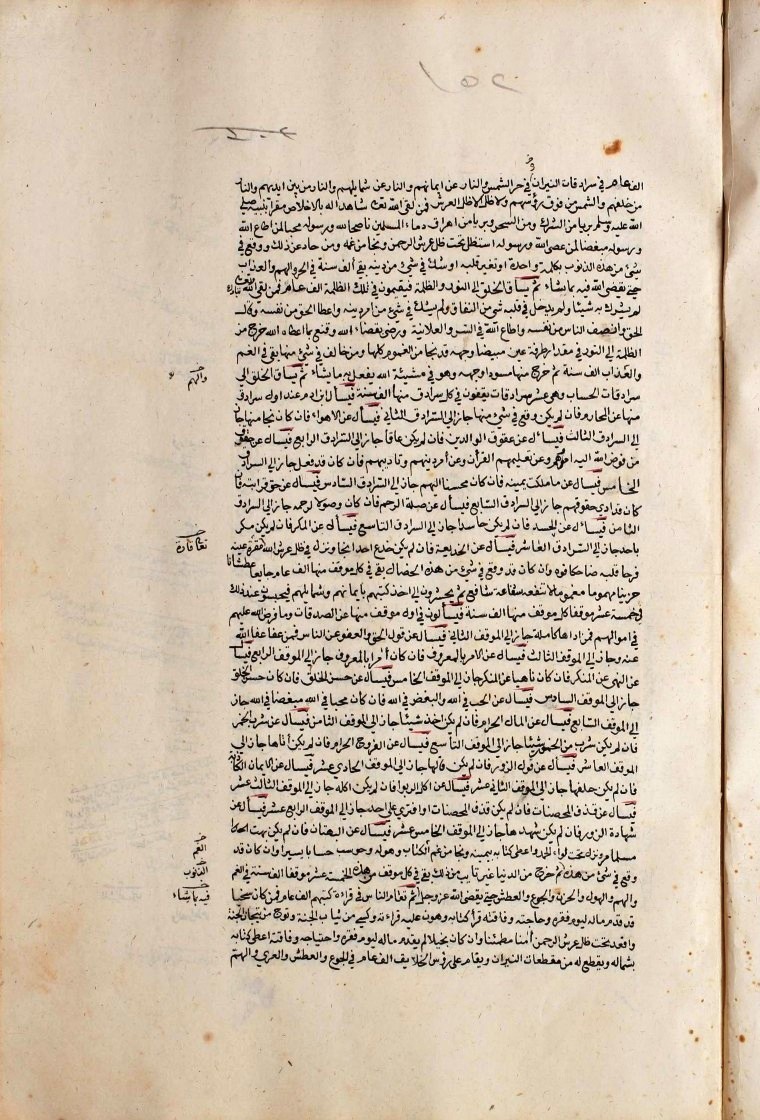 ١٥٢
الف عام في سرادقات النيران في حر الشمس والنار عن ايمانهم والنار عن شمايلهم والنار من بين ايديهم والنار
من خلفهم والشمس من فوق رؤسهم ولا ظل الا ظل العرش فمن لقى الله تعالى شاهدا له بالاخلاص مقرا بنبيه صلى
الله عليه وسلم بريا من الشرك ومن السحر وبريا من اهراق دماء المسلمين ناصحا لله ورسوله محبا لمن اطاع الله
ورسوله مبغضا لمن عصى الله ورسوله استظل تحت ظل عرش الرحمن ونجا من غمه ومن حاد عن ذلك ووقع في
شئ من هذه الذنوب بكلمة واحدة او تغير قلبه او شك في شئ من دينه بقي الف سنة في الحر والهم والعذاب
حتى يقضي الله فيه بما يشاء ثم يساق الخلق الى النور والظلمة فيقيمون في تلك الظلمة الف عام فمن لقى الله
لم يشرك به شيئا ولم يدخل في قلبه شئ من النفاق ولم يشك في شئ من امر دينه واعطا الحق من نفسه وقال
الحق وانصف الناس من نفسه واطاع الله في السر والعلانية ورضي بقضاء الله وقنع بما اعطاه الله خرج من
الظلمة الى النور في مقدار طرفة عين مبيضا وجهه قد نجا من الغموم كلها ومن خالف في شئ منها بقي في الغم
والعذاب الف سنة ثم خرج منها مسودا وجهه وهو في مشيئة الله يفعل به ما يشاء ثم يساق الخلق الى
والهم
سرادقات الحساب وهو عشر سرادقات يقفون في كل سرادق منها الف سنة فيسأل ابن ادم عند اول سرادق
منها عن المحارم فان لم يكن وقع في شئ منها جاز الى السرادق الثاني فيسأل عن الاهواء فان كان نجا منها جاز
الى السرادق الثالث فيسأل عن عقوق الوالدين فان لم يكن عاقا جاز الى السرادق الرابع فيسأل عن حقوق
من فوض الله اليه امرهم وعن تعليمهم القرأن وعن امر دينهم وتاديبهم فان كان قد فعل جاز الى السرادق
الخامس فيسأل عما ملكت يمينه فان كان محسنا اليهم جاز الى السرادق السادس فيسأل عن حق قرابته فان
كان قد ادى حقوقهم جاز الى السرادق السابع فيسأل عن صلة الرحم فان كان وصولا لرحمه جاز الى السرادق
الثامن فيسأل عن الحسد فان لم يكن حاسدا جاز الى السرادق التاسع فيسأل عن المكر فان لم يكن مكر
باحد جاز الى السرادق العاشر فيسأل عن الخديعة فان لم يكن خدع احدا نجا ونزل في ظل عرش الله قرة عينه
تعالى قارة
فرحا قلبه ضاحكا فوه وان كان قد وقع في شئ من هذه الخصال بقي في كل موقف منها الف عام جايعا عطشانا
حزينا مهموما مغموما لا تنفعه شفاعة شافع ثم يحشرون الى اخذ كتبهم بايمانهم وشمايلهم فيحبسون عند ذلك
في خمسة عشر موقفا كل موقف منها الف سنة فيسألون في اول موقف منها عن الصدقات وما فرض الله عليهم
في اموالهم فمن اداها كاملة جاز الى الموقف الثاني فيسأل عن قول الحق والعفو عن الناس فمن عفا عفا الله
عنه وجاز الى الموقف الثالث فيسأل عن الامر بالمعروف فان كان أمرا بالمعروف جاز الى الموقف الرابع فيسأل
عن النهي عن المنكر فان كان ناهيا عن المنكر جاز الى الموقف الخامس فيسأل عن حسن الخلق فان كان حسن الخلق
جاز الى الموقف السادس فيسأل عن الحب في الله والبغض في الله فان كان محبا في الله مبغضا في الله جاز
الى الموقف السابع فيسأل عن المال الحرام فان لم يكن اخذ شيئا جاز الى الموقف الثامن فيسأل عن شرب الخمر
فان لم يكن شرب من الخمر شيئا جاز الى الموقف التاسع فيسأل عن الفروج الحرام فان لم يكن أتاها جاز الى
الموقف العاشر فيسأل عن قول الزور فان لم يكن قالها جاز الى الموقف الحادي عشر فيسأل عن الايمان الكاذبة
فان لم يكن حلفها جاز الى الموقف الثاني عشر فيسأل عن اكل الربوا فان لم يكن اكله جاز الى الموقف الثالث عشر
فيسأل عن قذف المحصنات فان لم يكن قذف المحصنات او افترى على احد جاز الى الموقف الرابع عشر فيسأل عن
شهادة الزور فان لم يكن شهدها جاز الى الموقف الخامس عشر فيسأل عن البهتان فان لم يكن بهت احدا
مسلما مر ونزل تحت لواء الحمد واعطى كتابه بيمينه ونجا من غم الكتاب وهوله وحوسب حسابا يسيرا وان كان قد
الغم
وقع في شئ من هذه ثم خرج من الدنيا غير تايب من ذلك بقي في كل موقف من هذه الخمسة عشر موقفا الف سنة في الغم
الذنوب
والهم والهول والحزن والجوع والعطش حتى يقضي الله عز وجل ثم تقام الناس في قراءة كتبهم الف عام فمن كان سخيا
فيه بما يشاء
قد قدم ماله ليوم فقره وحاجته وفاقته قرأ كتابه وهون عليه قراءته وكسي من ثياب الجنة وتوج من تيجان الجنة
واقعد تحت ظل عرش الرحمن أمنا مطمئنا وان كان بخيلا لم يقدم ماله ليوم فقره واحتياجه وفاقته اعطى كتابه
بشماله ويقطع له من مقطعات النيران ويقام على رؤس الخلايف الف عام في الجوع والعطش والعري والهم